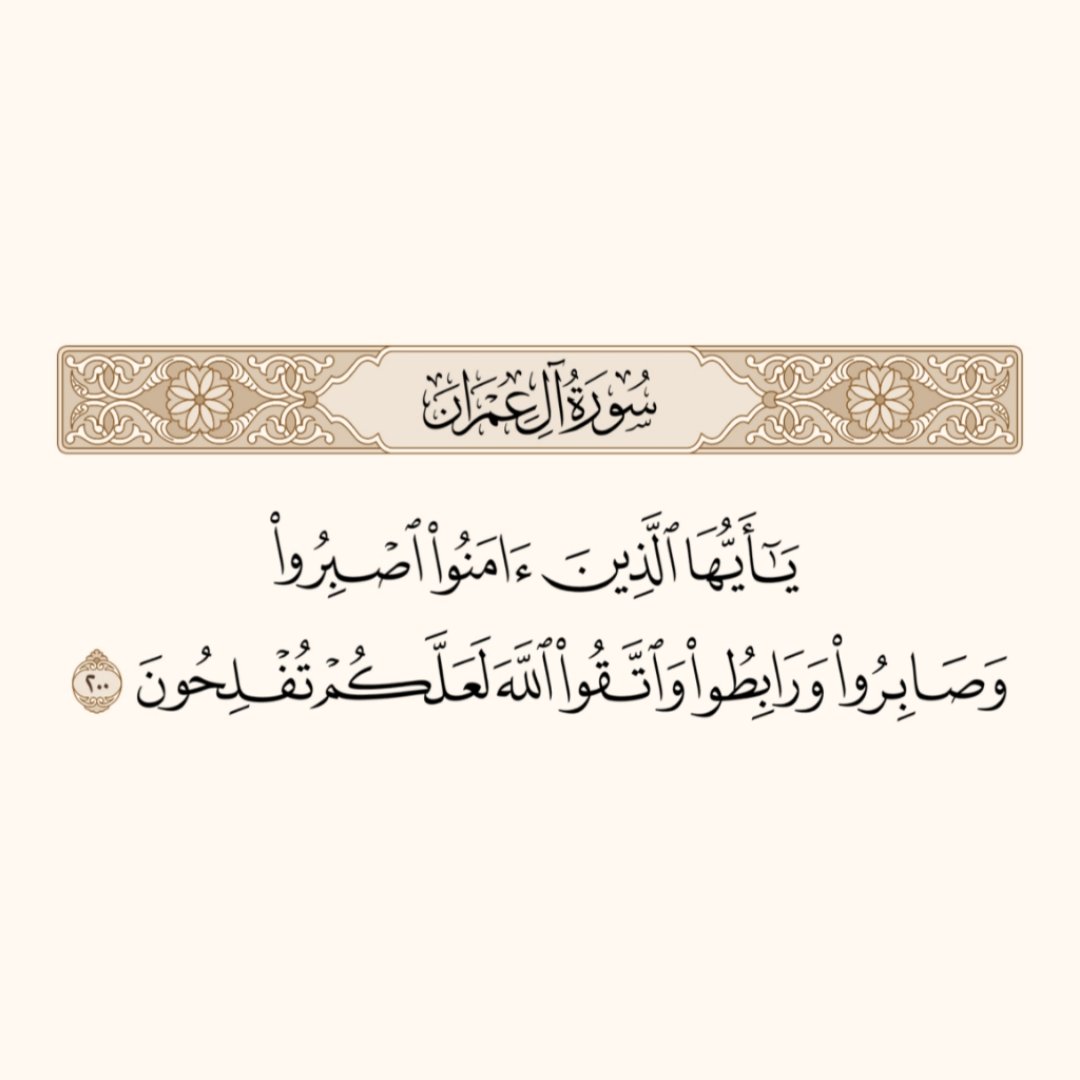 سُورَةُ آلِ عِمْرَانَ
يَـٰٓأَيُّهَا ٱلَّذِينَ ءَامَنُوا۟ ٱصْبِرُوا۟
وَصَابِرُوا۟ وَرَابِطُوا۟ وَٱتَّقُوا۟ ٱللَّهَ لَعَلَّكُمْ تُفْلِحُونَ ٢٠٠